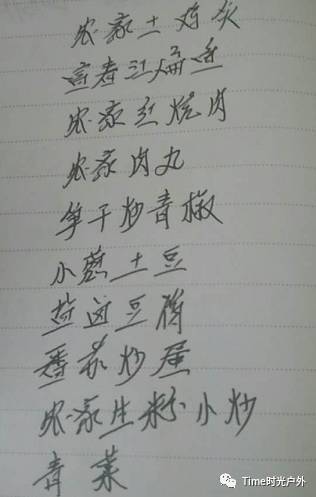 农家土鸡
春江鱼
农家红烧肉
农家肉丸
笋干炒青椒
小蘑土豆
盐卤豆腐
番茄炒蛋
农家生粉小炒
青菜
Time时光户外